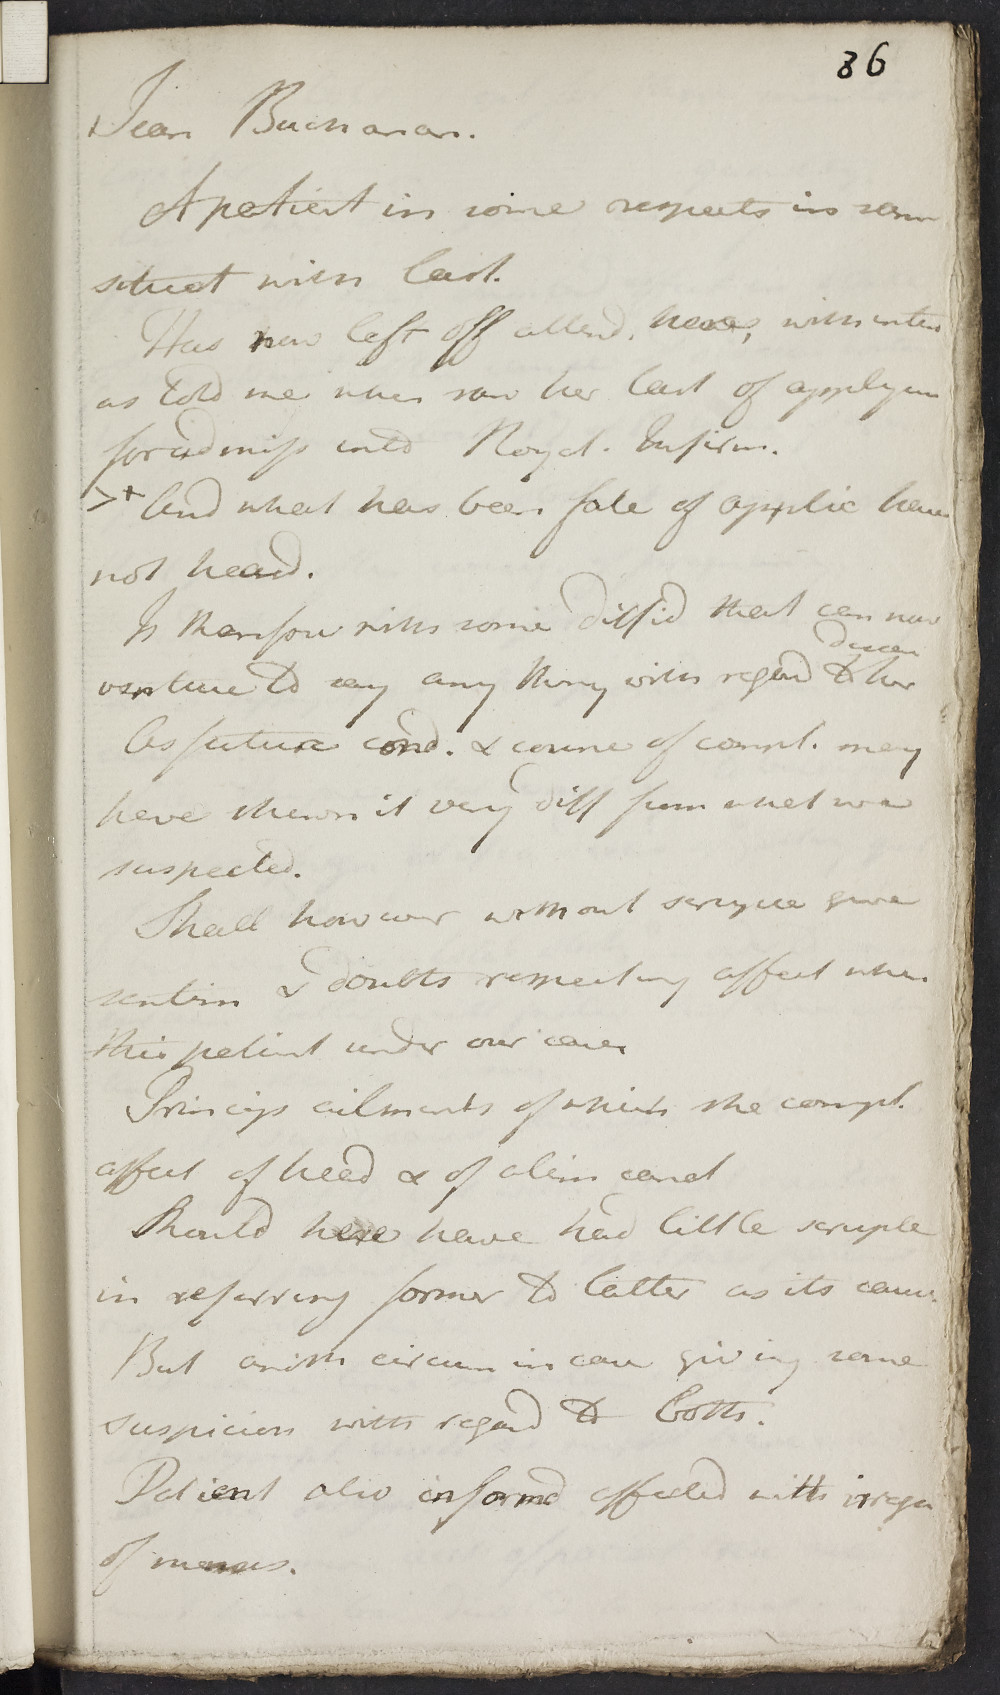 86
Jean Buchanan.
A patient in some respects in sam
situat with last.
Has now left off attend. here, with inten
as told me when saw her last of applyin
for admiss into Royal. Infirm.
>+ And what has been fate of applic have
not heard.
Is therefore with some diffid that can now
disea
venture to say any thing with regard to her
As future cond. & course of compl. may
have shewn it very diff from what we
suspected.
Shall however without scruple give
sentim & doubts respecting affect when
this patient under our care
Princip ailments of which she compl.
affect of head & of alim canal
Should here have had little scruple
in referring former to latter as its cause.
But anoth circum in case giving some
suspicion with regard to both.
Patient also informd affected with irregu
of menses.